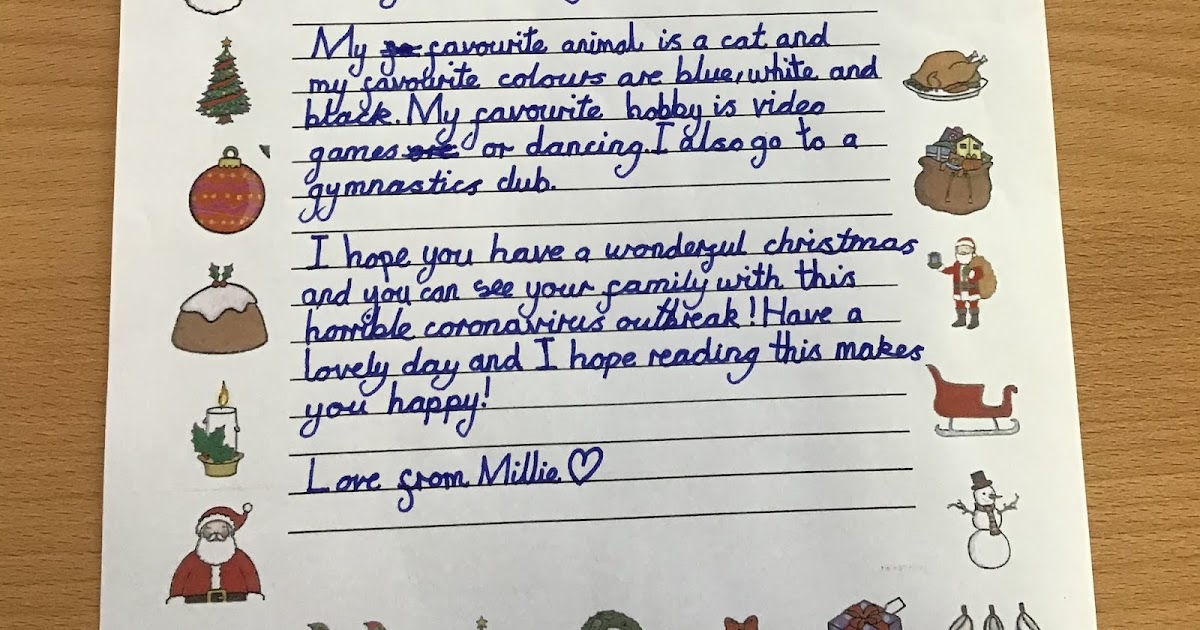 My favourite animal is a cat and
my favourite colours are blue, white and
black. My favourite hobby is video
games or dancing. I also go to a
gymnastics club.
I hope you have a wonderful christmas
and you can see your family with this
horrible coronavirus outbreak! Have a
lovely day and I hope reading this makes
you happy!
Love from Millie ♡